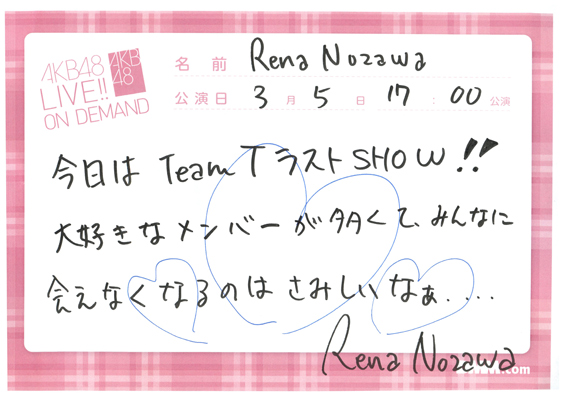 AKB48
LIVE!!
ON DEMAND
AKB
48
名 前 Rena Nozawa
公演日 3月5日 17:00公演
今日は Team T ラスト SHOW!!
大好きなメンバーが多くて、みんなに
会えなくなるのは さみしいなぁ....
Rena Nozawa
.com